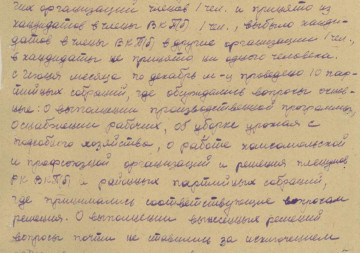 чих организаций членов 1 чел. и принято из
кандидатов в члены ВКП(б) 1 чел., выбыло канди-
датов в члены ВКП(б) в другие организации 1 чел.,
в кандидаты не принято ни одного человека.
С июня месяца по декабрь м-ц проведено 10 пар-
тийных собраний, где обсуждались вопросы очеред-
ные: О выполнении производственной программы,
О снабжении рабочих, об уборке урожая с
подсобного хозяйства, о работе комсомольской
и профсоюзной организаций и решения пленумов
РК ВКП(б) и районных партийных собраний,
где принимались соответствующие вопросам
решения. О выполнении вынесенных решений
вопросы почти не ставились за исключением